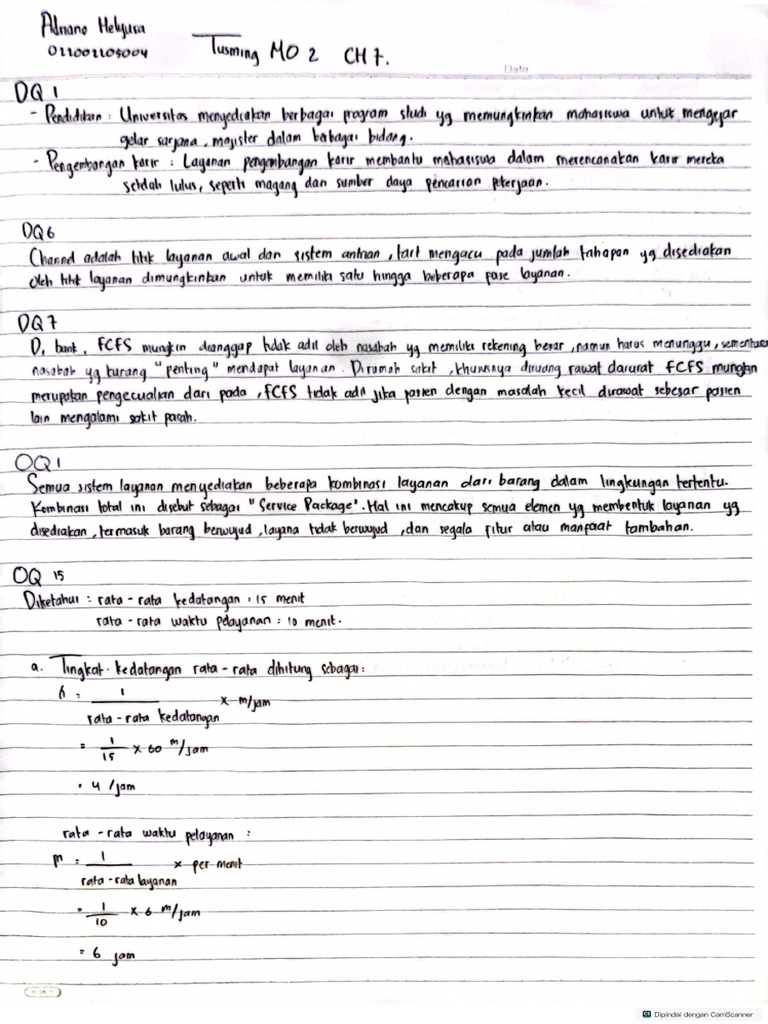 Adriano Helyusa
011001105004
Tusming MO 2 CH 7.
Date
DQ 1
- Pendidikan : Universitas menyediakan berbagai program studi yg memungkinkan mahasiswa untuk mengejar
gelar sarjana, majister dalam berbagai bidang.
- Pengembangan karir : Layanan pengembangan karir membantu mahasiswa dalam merencanakan karir mereka
setelah lulus, seperti magang dan sumber daya pencarian pekerjaan.
DQ 6
Channel adalah titik layanan awal dari sistem antrian, tart mengacu pada jumlah tahapan yg disediakan
oleh titik layanan dimungkinkan untuk memiliki satu hingga beberapa fase layanan.
DQ 7
Di bank, FCFS mungkin dianggap tidak adil oleh nasabah yg memiliki rekening besar, namun harus menunggu, sementara
nasabah yg kurang "penting" mendapat layanan. Dirumah sakit, khususnya diruang rawat darurat FCFS mungkin
merupakan pengecualian dari pada, FCFS tidak adil jika pasien dengan masalah kecil dirawat sebesar pasien
lain mengalami sakit parah.
OQ 1
Semua sistem layanan menyediakan beberapa kombinasi layanan dari barang dalam lingkungan tertentu.
Kombinasi total ini disebut sebagai "Service Package". Hal ini mencakup semua elemen yg membentuk layanan yg
disediakan, termasuk barang berwujud, layana tidak berwujud, dan segala fitur atau manfaat tambahan.
OQ 15
Diketahui : rata - rata kedatangan : 15 menit
rata - rata waktu pelayanan : 10 menit.
a. Tingkat kedatangan rata - rata dihitung sebagai :
λ = 1 / rata - rata kedatangan x m/jam
= 1/15 x 60 m/jam
= 4 /jam
rata - rata waktu pelayanan :
M = 1 / rata - rata layanan x per menit
= 1/10 x 6 m/jam
= 6 jam
Dipindai dengan CamScanner